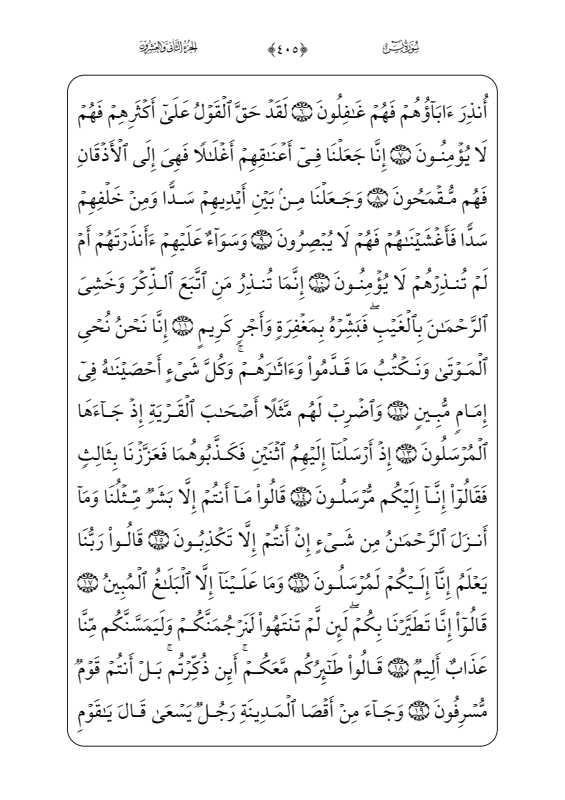 الجزء الثاني والعشرون ﴿٤٠٥﴾ سورة يسٓ
أُنذِرَ ءَابَآؤُهُمۡ فَهُمۡ غَٰفِلُونَ ۝٦ لَقَدۡ حَقَّ ٱلۡقَوۡلُ عَلَىٰٓ أَكۡثَرِهِمۡ فَهُمۡ
لَا يُؤۡمِنُونَ ۝٧ إِنَّا جَعَلۡنَا فِىٓ أَعۡنَٰقِهِمۡ أَغۡلَٰلًا فَهِىَ إِلَى ٱلۡأَذۡقَانِ
فَهُم مُّقۡمَحُونَ ۝٨ وَجَعَلۡنَا مِنۢ بَيۡنِ أَيۡدِيهِمۡ سَدًّا وَمِنۡ خَلۡفِهِمۡ
سَدًّا فَأَغۡشَيۡنَٰهُمۡ فَهُمۡ لَا يُبۡصِرُونَ ۝٩ وَسَوَآءٌ عَلَيۡهِمۡ ءَأَنذَرۡتَهُمۡ أَمۡ
لَمۡ تُنذِرۡهُمۡ لَا يُؤۡمِنُونَ ۝١٠ إِنَّمَا تُنذِرُ مَنِ ٱتَّبَعَ ٱلذِّكۡرَ وَخَشِىَ
ٱلرَّحۡمَٰنَ بِٱلۡغَيۡبِۖ فَبَشِّرۡهُ بِمَغۡفِرَةٍ وَأَجۡرٍ كَرِيمٍ ۝١١ إِنَّا نَحۡنُ نُحۡىِ
ٱلۡمَوۡتَىٰ وَنَكۡتُبُ مَا قَدَّمُواْ وَءَاثَٰرَهُمۡۚ وَكُلَّ شَىۡءٍ أَحۡصَيۡنَٰهُ فِىٓ
إِمَامٍ مُّبِينٍ ۝١٢ وَٱضۡرِبۡ لَهُم مَّثَلًا أَصۡحَٰبَ ٱلۡقَرۡيَةِ إِذۡ جَآءَهَا
ٱلۡمُرۡسَلُونَ ۝١٣ إِذۡ أَرۡسَلۡنَآ إِلَيۡهِمُ ٱثۡنَيۡنِ فَكَذَّبُوهُمَا فَعَزَّزۡنَا بِثَالِثٍ
فَقَالُوٓاْ إِنَّآ إِلَيۡكُم مُّرۡسَلُونَ ۝١٤ قَالُواْ مَآ أَنتُمۡ إِلَّا بَشَرٌ مِّثۡلُنَا وَمَآ
أَنزَلَ ٱلرَّحۡمَٰنُ مِن شَىۡءٍ إِنۡ أَنتُمۡ إِلَّا تَكۡذِبُونَ ۝١٥ قَالُواْ رَبُّنَا
يَعۡلَمُ إِنَّآ إِلَيۡكُمۡ لَمُرۡسَلُونَ ۝١٦ وَمَا عَلَيۡنَآ إِلَّا ٱلۡبَلَٰغُ ٱلۡمُبِينُ ۝١٧
قَالُوٓاْ إِنَّا تَطَيَّرۡنَا بِكُمۡۖ لَئِن لَّمۡ تَنتَهُواْ لَنَرۡجُمَنَّكُمۡ وَلَيَمَسَّنَّكُم مِّنَّا
عَذَابٌ أَلِيمٌ ۝١٨ قَالُواْ طَٰٓئِرُكُم مَّعَكُمۡۚ أَئِن ذُكِّرۡتُمۚ بَلۡ أَنتُمۡ قَوۡمٌ
مُّسۡرِفُونَ ۝١٩ وَجَآءَ مِنۡ أَقۡصَا ٱلۡمَدِينَةِ رَجُلٌ يَسۡعَىٰ قَالَ يَٰقَوۡمِ